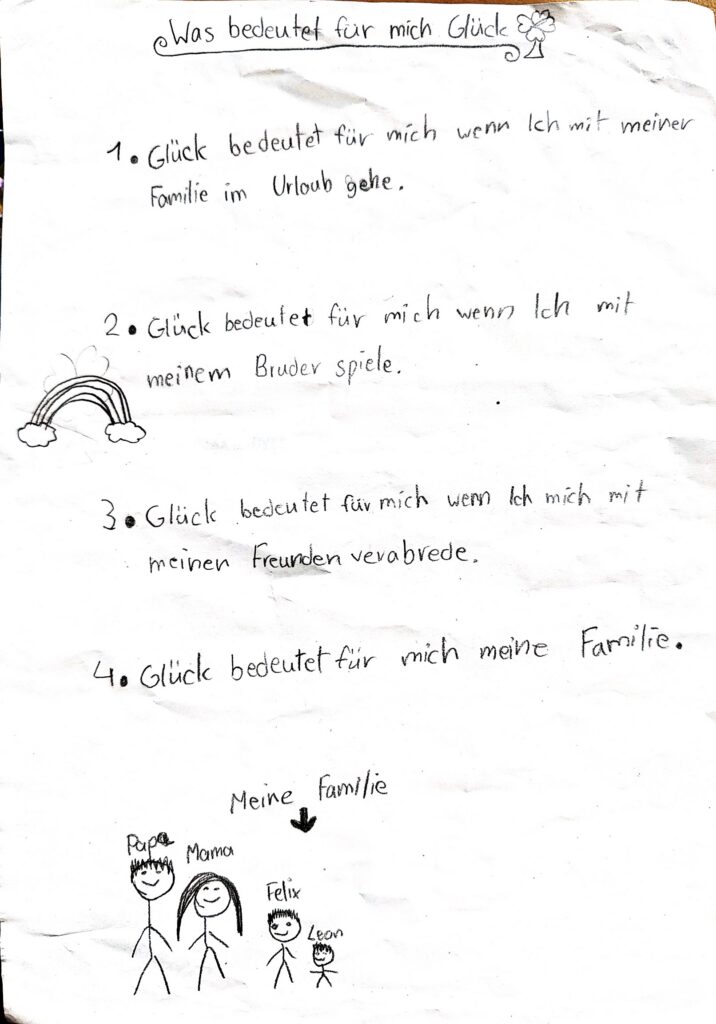 Was bedeutet für mich Glück
1. Glück bedeutet für mich wenn Ich mit meiner
Familie im Urlaub gehe.
2. Glück bedeutet für mich wenn Ich mit
meinem Bruder spiele.
3. Glück bedeutet für mich wenn Ich mich mit
meinen Freunden verabrede.
4. Glück bedeutet für mich meine Familie.
Meine Familie
Papa
Mama
Felix
Leon